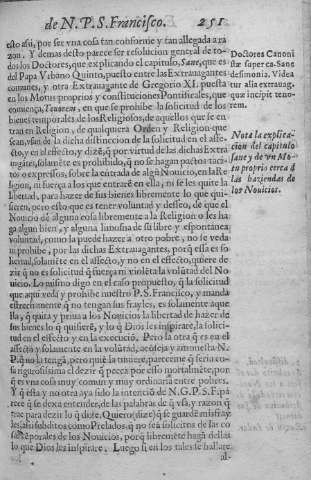 de N. P. S. Francisco. 251
esto assi, por ser vna cosa tan conforme y tan allegada a ra
zon. Y demas desto parece ser resolucion general de to-
dos los Doctores, que explicando el capitulo, Sane, que es
del Papa Vrbano Quinto, puesto entre las Extrauagantes
comunes, y otra Extrauagante de Gregorio XI. puesta
en los Motus proprios y constituciones Pontificales, que
comiença, Tenorem, en que se prohibe la solicitud de los
bienes temporales de los Religiosos, de aquellos que se en
tran en Religion, de qualquiera Orden y Religion que
sean, vsan de la dicha distinccion de la solicitud en el affe-
cto, y en el effecto, y dizē, q̄ por virtud de las dichas Extra
uagātes, solamēte es prohibido, q̄ no se hagan pactos taci-
tos o expressos, sobre la entrada de algū Nouicio, en la Re
ligion, ni fuerça a los que entrarē en ella, ni se les quite la
libertad, para hazer de sus bienes libremente lo que qui-
sieren, otro esto que es tener voluntad y desseo, de que el
Nouicio dē alguna cosa libremente a la Religion o les ha
ga algun bien, y alguna limosna de su libre y espontanea
voluntad, como la puede hazer a otro pobre, no le veda
ni prohibe, por las dichas Extrauagantes, porq̄ esta es so
lamente en el affecto, y no en el effecto, q̄ quiere de
zir q̄ no es solicitud q̄ fuerça ni violēta la volūtad del No
uicio. Lo mismo digo en el caso propuesto, q̄ la solicitud
que aqui veda y prohibe nuestro P. S. Francisco, y manda
estrechamente q̄ no tengan sus frayles, es solamente aque
lla, q̄ quita y priua a los Nouicios la libertad de hazer de
sus bienes lo q̄ quisierē, y lo q̄ Dios les inspirare, la solici-
tud en el effecto y en la execucion. Pero la otra q̄ es en el
affecto y solamente en la volūtad, acōseja y amonesta N.
P. q̄ no la tengā, pero que la tuuiere, pareceme q̄ seria co-
sa rigurosissima el dezir q̄ pecca por esso mortalmēte, por
q̄ es vna cosa muy comun y muy ordinaria entre pobres.
Y q̄ esta y no otra aya sido la intencion de N. G. P. S. F. pa
rece q̄ se dexa entender, de las palabras de q̄ vsa, y razon q̄
trae para dezir lo q̄ dize. Quiero (dize) q̄ se guardē mis fray
les, assi subditos como Prelados, q̄ no seā solicitos de las co
sas tēporales de los Nouicios, porq̄ libremēte hagā dellas
lo que Dios les inspirare. Luego si en los tales se hallare
al-
Doctores Canoni
stæ super ca. Sane
de simonia. Videa
tur alia extrauag.
quæ incipit teno-
rem.
Nota la explica-
cion del capitulo
sane y de vn Mo-
tu proprio cerca d̄
las haziendas de
los Nouicios.